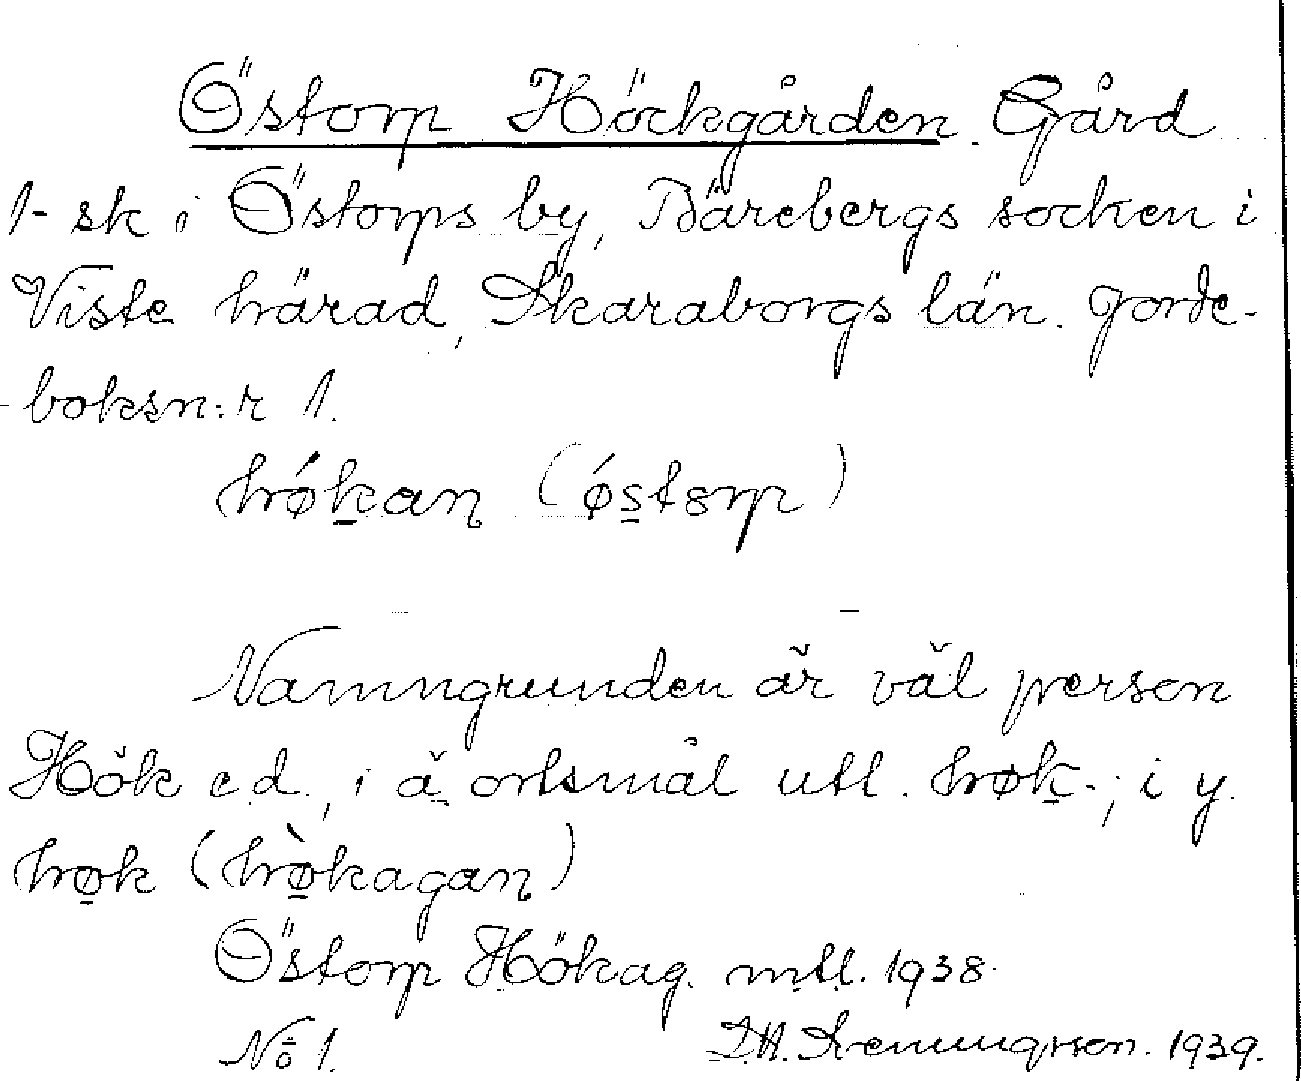 Östorp Höckgården. Gård
1- sk i Östorps by, Bärebergs socken i
Viste härad, Skaraborgs län. Jorde-
-boksn:r 1.
hǿk̲an (ǿs̲torp)
Namngrunden är väl person
Hök e.d., i ä. ortsmål utt. høk̲-; i y.
hø̲k (hø̲̀kagan)
Östorp Hökag. mtl. 1938.
No 1. 1939.